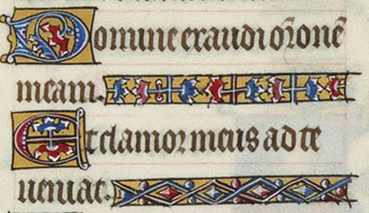 Domine exaudi or̃onẽ
meam.
Et clamor meus ad te
ueniat.